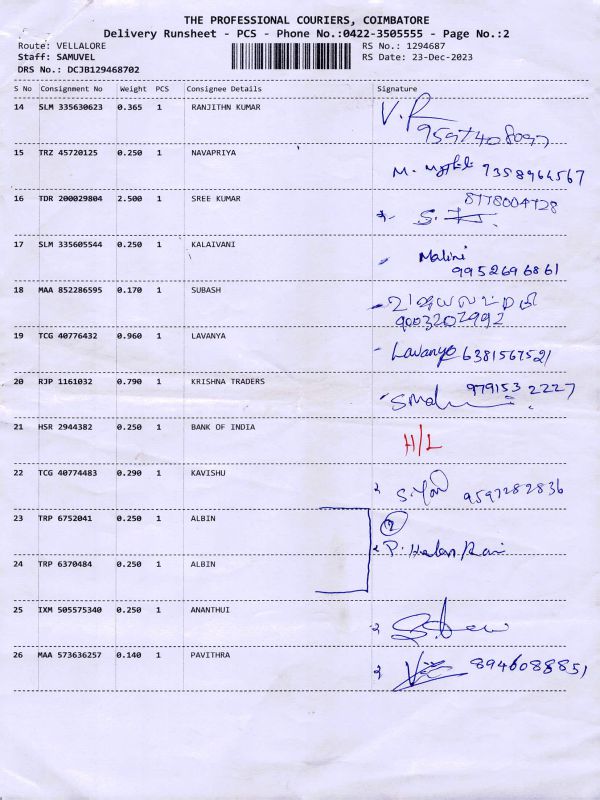 THE PROFESSIONAL COURIERS, COIMBATORE
Delivery Runsheet - PCS - Phone No.:0422-3505555 - Page No.:2
Route: VELLALORE RS No.: 1294687
Staff: SAMUVEL RS Date: 23-Dec-2023
DRS No.: DCJB129468702
S No Consignment No Weight PCS Consignee Details Signature
14 SLM 335630623 0.365 1 RANJITHN KUMAR
15 TRZ 45720125 0.250 1 NAVAPRIYA M. 7358964567
16 TDR 200029804 2.500 1 SREE KUMAR 8778004728
17 SLM 335605544 0.250 1 KALAIVANI Malini
9952696861
18 MAA 852286595 0.170 1 SUBASH
9003202992
19 TCG 40776432 0.960 1 LAVANYA Lavanya 6381567521
20 RJP 1161032 0.790 1 KRISHNA TRADERS 979153 2227
21 HSR 2944382 0.250 1 BANK OF INDIA H/L
22 TCG 40774483 0.290 1 KAVISHU 9597282836
23 TRP 6752041 0.250 1 ALBIN 2
P. Helan Rani
24 TRP 6370484 0.250 1 ALBIN
25 IXM 505575340 0.250 1 ANANTHUI
26 MAA 573636257 0.140 1 PAVITHRA 8946088851